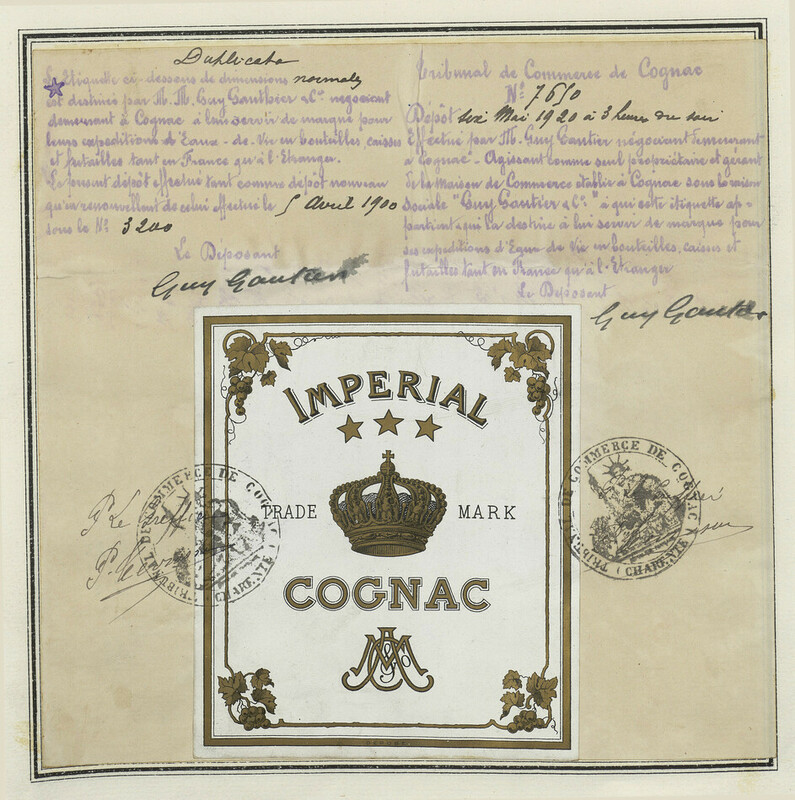 Duplicata
L'Etiquette ci-dessous de dimensions normales
est destinée par M.M. Guy Gauthier & Cº negociant
demeurant à Cognac à lui servir de marque pour
leurs expeditions d'Eaux-de-Vie en bouteilles, caisses
et futailles tant en France qu'à l'Etranger.
Le présent dépôt effectué tant comme dépôt nouveau
qu'en renouvellant de celui effectué le 5 Avril 1900
sous le Nº 3200
Le Deposant
Guy Gautier
Tribunal de Commerce de Cognac
Nº 7650
Dépôt six Mai 1920 à 3 heures du soir
Effectué par M. Guy Gautier négociant demeurant
à Cognac. Agissant comme seul propriétaire et gérant
de la Maison de Commerce établie à Cognac sous la raison
sociale "Guy Gautier & Cº" à qui cette étiquette ap-
partient qui la destine à lui servir de marque pour
ses expeditions d'Eaux de Vie en bouteilles, caisses et
futailles tant en France qu'à l'Etranger
Le Deposant
Guy Gautier
IMPERIAL
TRADE MARK
COGNAC
TRIBUNAL DE COMMERCE DE COGNAC
(CHARENTE)
P. Le Greffier
TRIBUNAL DE COMMERCE DE COGNAC
(CHARENTE)